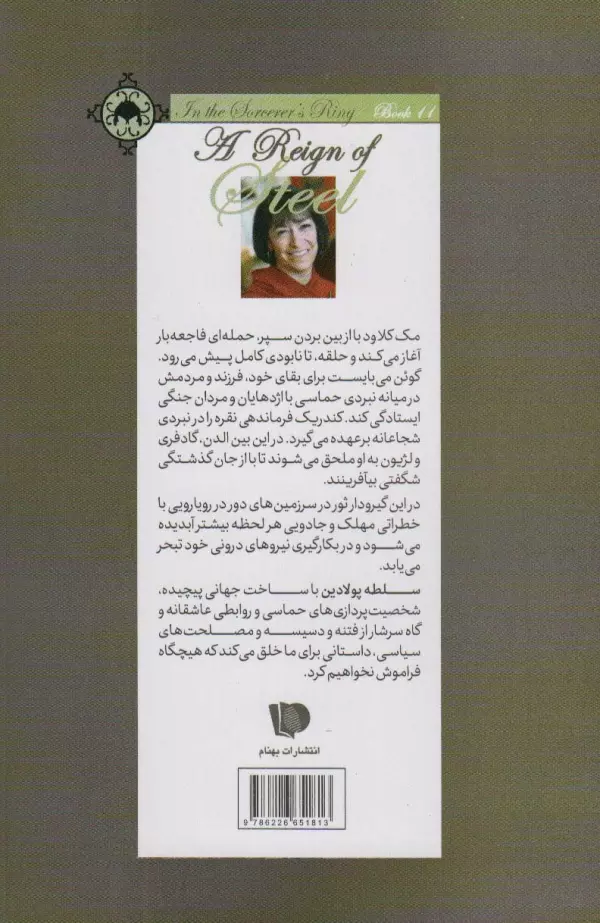 In the Sorcerer's Ring Book 11
A Reign of
Steel
مک‌کلاود با از بین بردن سپر، حمله‌ای فاجعه‌بار
آغاز می‌کند و حلقه، تا نابودی کامل پیش می‌رود.
گوئن می‌بایست برای بقای خود، فرزند و مردمش
در میانه نبردی حماسی با اژدهایان و مردان جنگی
ایستادگی کند. کندریک فرماندهی نقره را در نبردی
شجاعانه برعهده می‌گیرد. در این بین الدن، گادفری
و لژیون به او ملحق می‌شوند تا با از جان گذشتگی
شگفتی بیآفرینند.
در این گیرودار ثور در سرزمین‌های دور در رویارویی با
خطراتی مهلک و جادویی هر لحظه بیشتر آبدیده
می‌شود و در بکارگیری نیروهای درونی خود تبحر
می‌یابد.
سلطه پولادین با ساخت جهانی پیچیده،
شخصیت‌پردازی‌های حماسی و روابطی عاشقانه و
گاه سرشار از فتنه و دسیسه و مصلحت‌های
سیاسی، داستانی برای ما خلق می‌کند که هیچگاه
فراموش نخواهیم کرد.
انتشارات بهنام
9 786226 651813